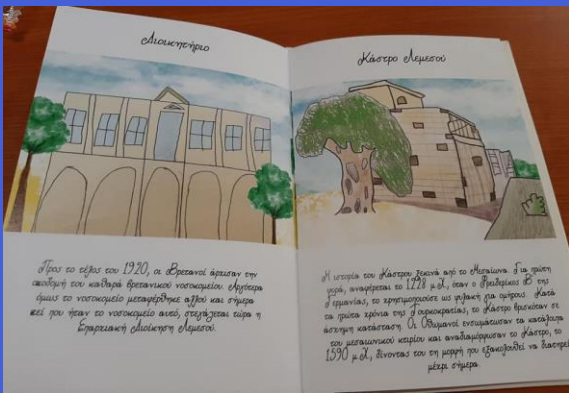 Διοικητήριο
Προς το τέλος του 1920, οι Βρετανοί άρχισαν την
οικοδομή του καθαρά βρετανικού νοσοκομείου. Αργότερα
όμως το νοσοκομείο μεταφέρθηκε αλλού και σήμερα
εκεί που ήταν το νοσοκομείο αυτό, στεγάζεται τώρα η
Επαρχιακή Διοίκηση Λεμεσού.
Κάστρο Λεμεσού
Η ιστορία του Κάστρου ξεκινά από το Μεσαίωνα. Για πρώτη
φορά, αναφέρεται το 1228 μ.Χ, όταν ο Φρειδερίκος Β΄ της
Γερμανίας, το χρησιμοποίησε ως φυλακή για ομήρους. Κατά
τα πρώτα χρόνια της Τουρκοκρατίας, το Κάστρο βρισκόταν σε
άσχημη κατάσταση. Οι Οθωμανοί ενσωμάτωσαν τα κατάλοιπα
του μεσαιωνικού κτιρίου και αναδιαμόρφωσαν το Κάστρο, το
1590 μ.Χ, δίνοντας του τη μορφή που εξακολουθεί να διατηρεί
μέχρι σήμερα.